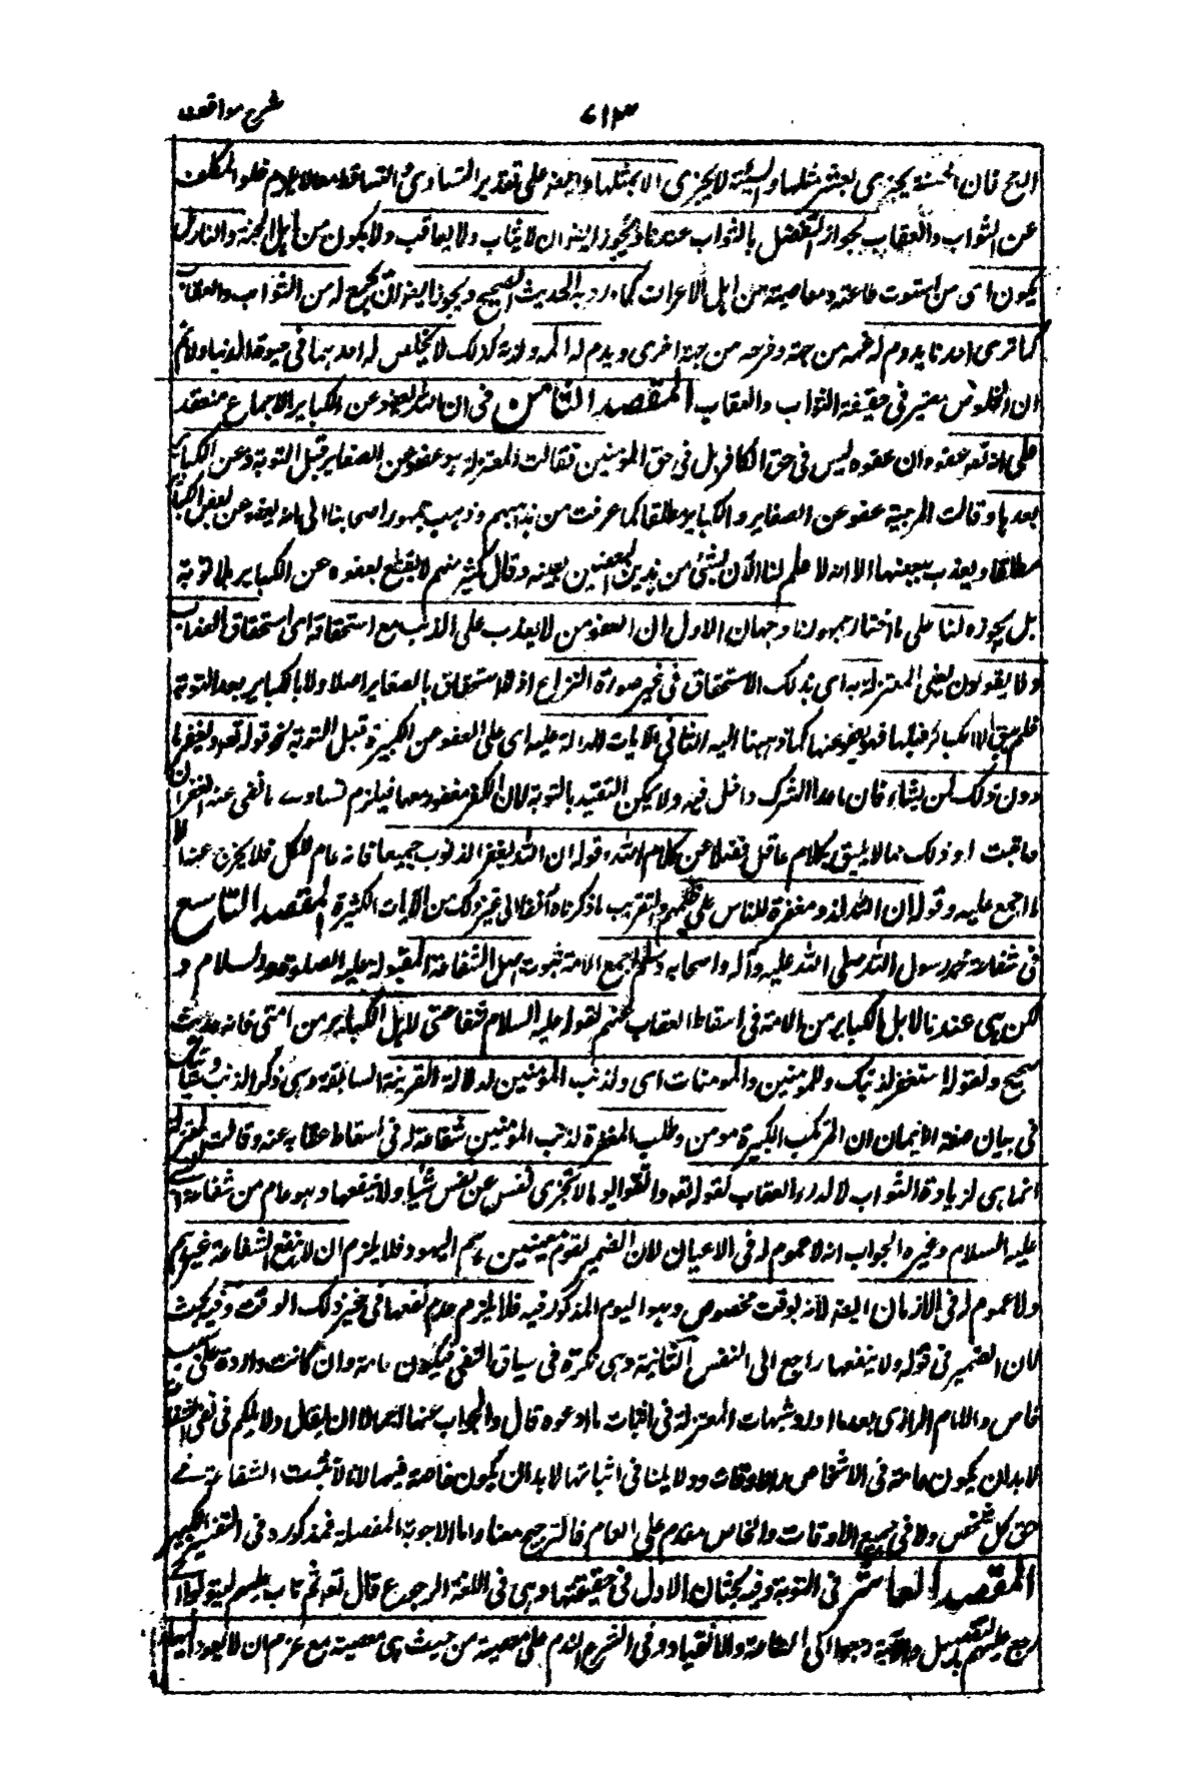 شرح مواقف
٧١٣
ارجح فان الحسنة يجزى بعشر مثلها والسيئة لا يجزى الا بمثلها وايضا على تقدير التساوى والتساقط معا لا يلزم خلو المكلف
عن الثواب والعقاب لجواز التفضل بالثواب عندنا ويجوز ايضا ان لا يثاب ولا يعاقب ولا يكون من اهل الجنة والنار بل
يكون اى من استوت طاعته ومعاصيه من اهل الاعراف كما ورد به الحديث الصحيح ويجوز ايضا ان يجمع له من الثواب والعقاب
كما نرى احدنا يدوم له غمه من جهة وفرحه من جهة اخرى ويدوم له المه ولذته كذلك لا يخلص له احدهما فى حيوة الدنيا ولا نم
ان الخلوص معتبر فى حقيقة الثواب والعقاب المقصد الثامن فى ان الله يعفو عن الكباير الاجماع منعقد
على انه تعه عفو وان عفوه ليس فى حق الكافر بل فى حق المؤمنين فقالت المعتزلة هو عفو عن الصغاير قبل التوبة وعن الكباير
بعدها وقالت المرجية عفو عن الصغاير والكباير مطلقا كما عرفت من مذهبهم وذهب جمهور اصحابنا الى انه يعفو عن بعض الكباير
مطلقا ويعذب ببعضها الا انه لا علم لنا الآن بشئ من هذين البعضين بعينه وقال كثير منهم لا يقطع بعفوه عن الكباير بلا توبة
بل يجوزه لنا على ما اختاره جمهورنا وجهان الاول ان العفو من لا يعذب على الذنب مع استحقاقه اى استحقاق العذاب
ولا يقولون يعنى المعتزلة به اى بذلك الاستحقاق فى غير صورة النزاع اذ لا استحقاق بالصغاير اصلا ولا بالكباير بعد التوبة
فلم يبق الا الكباير قبلها فهو يعفو عنها كما ذهبنا اليه الثانى الآيات الدالة عليه اى على العفو عن الكبيرة قبل التوبة نحو قوله تعه ويغفر ما
دون ذلك لمن يشاء فان ما عدا الشرك داخل فيه ولا يمكن التقييد بالتوبة لان الكفر مغفور معها فيلزم تساوى ما نفى عنه الغفران
وما ثبت له وذلك مما لا يليق بكلام عاقل فضلا عن كلام الله وقوله ان الله يغفر الذنوب جميعا فانه عام للكل فلا يخرج عنه الا
ما اجمع عليه وقوله ان الله لذو مغفرة للناس على ظلمهم والتقريب ما ذكرناه آنفا الى غير ذلك من الآيات الكثيرة المقصد التاسع
فى شفاعة محمد رسول الله صلى الله عليه وآله واصحابه وسلم اجمع الامة على ثبوت اصل الشفاعة المقبولة له عليه الصلوة والسلام و
لكن هى عندنا لاهل الكباير من الامة فى اسقاط العقاب عنهم لقوله عليه السلام شفاعتى لاهل الكباير من امتى فانه حديث
صحيح ولقوله استغفر لذنبك وللمؤمنين والمؤمنات اى ولذنب المؤمنين لدلالة القرينة السابقة وهى ذكر الذنب
فى بيان حقيقة الايمان ان مرتكب الكبيرة مؤمن وطلب المغفرة لذنب المؤمنين شفاعة له فى اسقاط عقابه عنه وقالت المعتزلة
انما هى لزيادة الثواب لا لدرء العقاب لقوله تعه واتقوا يوما لا تجزى نفس عن نفس شيئا ولا تنفعها وهو عام من شفاعة
عليه السلام وغيره الجواب انه لا عموم له فى الاعيان لان الضمير لقوم معينين هم اليهود فلا يلزم ان لا ينفع الشفاعة غيرهم
ولا عموم له فى الازمان ايضا لانه لوقت مخصوص وهو اليوم المذكور فيه فلا يلزم عدم نفعها فى غير ذلك الوقت وفيه بحث
لان الضمير فى قوله ولا ينفعها راجع الى النفس الثانية وهى نكرة فى سياق النفى فيكون عامة وان كانت واردة على سبب
خاص والامام الرازى بعد ما اورد شبهات المعتزلة فى اثبات ما ادعوه قال والجواب عنها اجمالا ان يقال دلايلكم فى نفى الشفاعة
لا بد ان يكون عامة فى الاشخاص والاوقات ودلايلنا فى اثباتها لا بد ان يكون خاصة فيهما لانا لا نثبت الشفاعة فى
حق كل شخص ولا فى جميع الاوقات والخاص مقدم على العام فالترجيح معنا واما الاجوبة المفصلة فمذكورة فى التفسير الكبير
المقصد العاشر فى التوبة وفيه بحثان الاول فى حقيقتها وهى فى اللغة الرجوع قال تعه ثم تاب عليهم ليتوبوا اى
رجع عليهم بالتفضل ليرجعوا الى الطاعة والانقياد وفى الشرع الندم على معصية من حيث هى معصية مع عزم ان لا يعود اليها